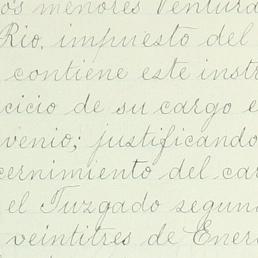 os menores Ventura
Rio, impuesto del
contiene este instr
cicio de su cargo e
venio; justificando
cernimiento del car
el Juzgado segun
veintitres de Ener